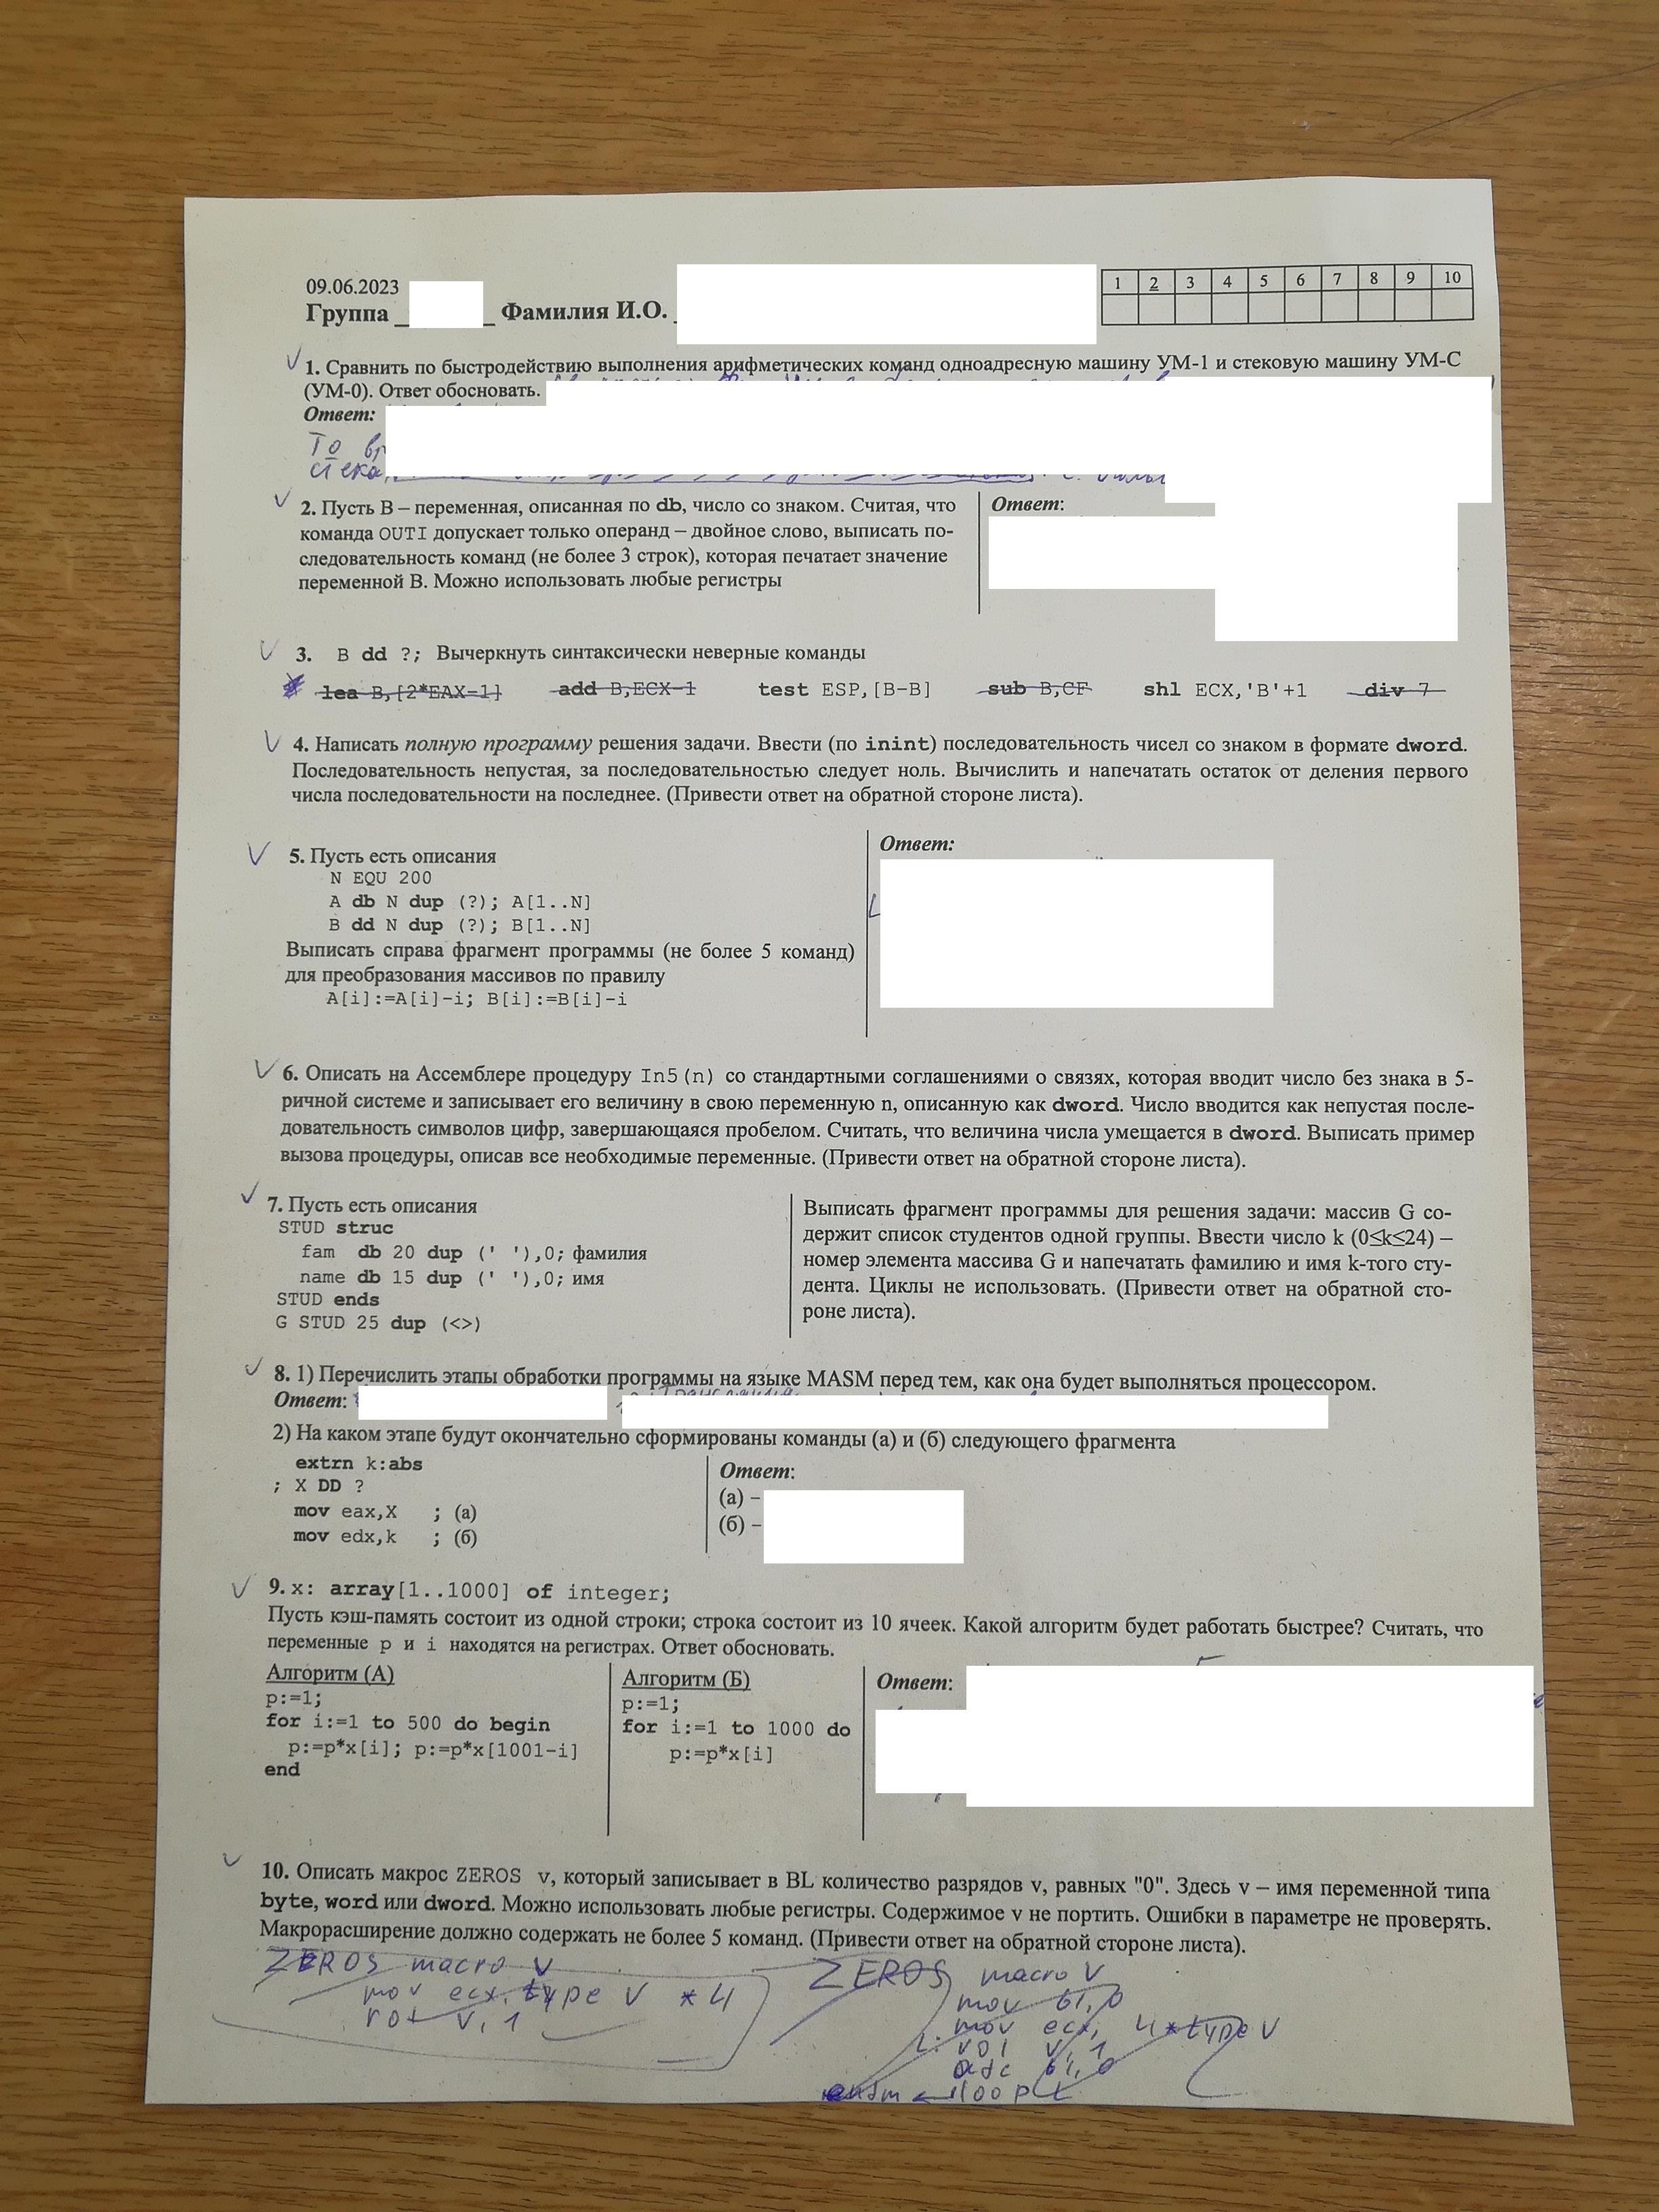 09.06.2023
Группа _ _ Фамилия И.О. _
1 2 3 4 5 6 7 8 9 10
1. Сравнить по быстродействию выполнения арифметических команд одноадресную машину УМ-1 и стековую машину УМ-С
(УМ-0). Ответ обосновать.
Ответ:
То
стека,
2. Пусть В – переменная, описанная по db, число со знаком. Считая, что
команда OUTI допускает только операнд – двойное слово, выписать по-
следовательность команд (не более 3 строк), которая печатает значение
переменной В. Можно использовать любые регистры
Ответ:
3. B dd ?; Вычеркнуть синтаксически неверные команды
lea B,[2*EAX-1] add B,ECX-1 test ESP,[B-B] sub B,CF shl ECX,'B'+1 div 7
4. Написать полную программу решения задачи. Ввести (по inint) последовательность чисел со знаком в формате dword.
Последовательность непустая, за последовательностью следует ноль. Вычислить и напечатать остаток от деления первого
числа последовательности на последнее. (Привести ответ на обратной стороне листа).
5. Пусть есть описания
N EQU 200
A db N dup (?); A[1..N]
B dd N dup (?); B[1..N]
Выписать справа фрагмент программы (не более 5 команд)
для преобразования массивов по правилу
A[i]:=A[i]-i; B[i]:=B[i]-i
Ответ:
6. Описать на Ассемблере процедуру In5(n) со стандартными соглашениями о связях, которая вводит число без знака в 5-
ричной системе и записывает его величину в свою переменную n, описанную как dword. Число вводится как непустая после-
довательность символов цифр, завершающаяся пробелом. Считать, что величина числа умещается в dword. Выписать пример
вызова процедуры, описав все необходимые переменные. (Привести ответ на обратной стороне листа).
7. Пусть есть описания
STUD struc
fam db 20 dup (' '),0; фамилия
name db 15 dup (' '),0; имя
STUD ends
G STUD 25 dup (<>)
Выписать фрагмент программы для решения задачи: массив G со-
держит список студентов одной группы. Ввести число k (0≤k≤24) –
номер элемента массива G и напечатать фамилию и имя k-того сту-
дента. Циклы не использовать. (Привести ответ на обратной сто-
роне листа).
8. 1) Перечислить этапы обработки программы на языке MASM перед тем, как она будет выполняться процессором.
Ответ:
2) На каком этапе будут окончательно сформированы команды (а) и (б) следующего фрагмента
extrn k:abs
; X DD ?
mov eax,X ; (а)
mov edx,k ; (б)
Ответ:
(а) –
(б) –
9. x: array[1..1000] of integer;
Пусть кэш-память состоит из одной строки; строка состоит из 10 ячеек. Какой алгоритм будет работать быстрее? Считать, что
переменные p и i находятся на регистрах. Ответ обосновать.
Алгоритм (А)
p:=1;
for i:=1 to 500 do begin
p:=p*x[i]; p:=p*x[1001-i]
end
Алгоритм (Б)
p:=1;
for i:=1 to 1000 do
p:=p*x[i]
Ответ:
10. Описать макрос ZEROS v, который записывает в BL количество разрядов v, равных "0". Здесь v – имя переменной типа
byte, word или dword. Можно использовать любые регистры. Содержимое v не портить. Ошибки в параметре не проверять.
Макрорасширение должно содержать не более 5 команд. (Привести ответ на обратной стороне листа).
ZEROS macro v
mov ecx, type v *4
rol v, 1
ZEROS macro v
mov bl, 0
mov ecx, 4*type v
L: rol v, 1
adc bl, 0
endm loop L